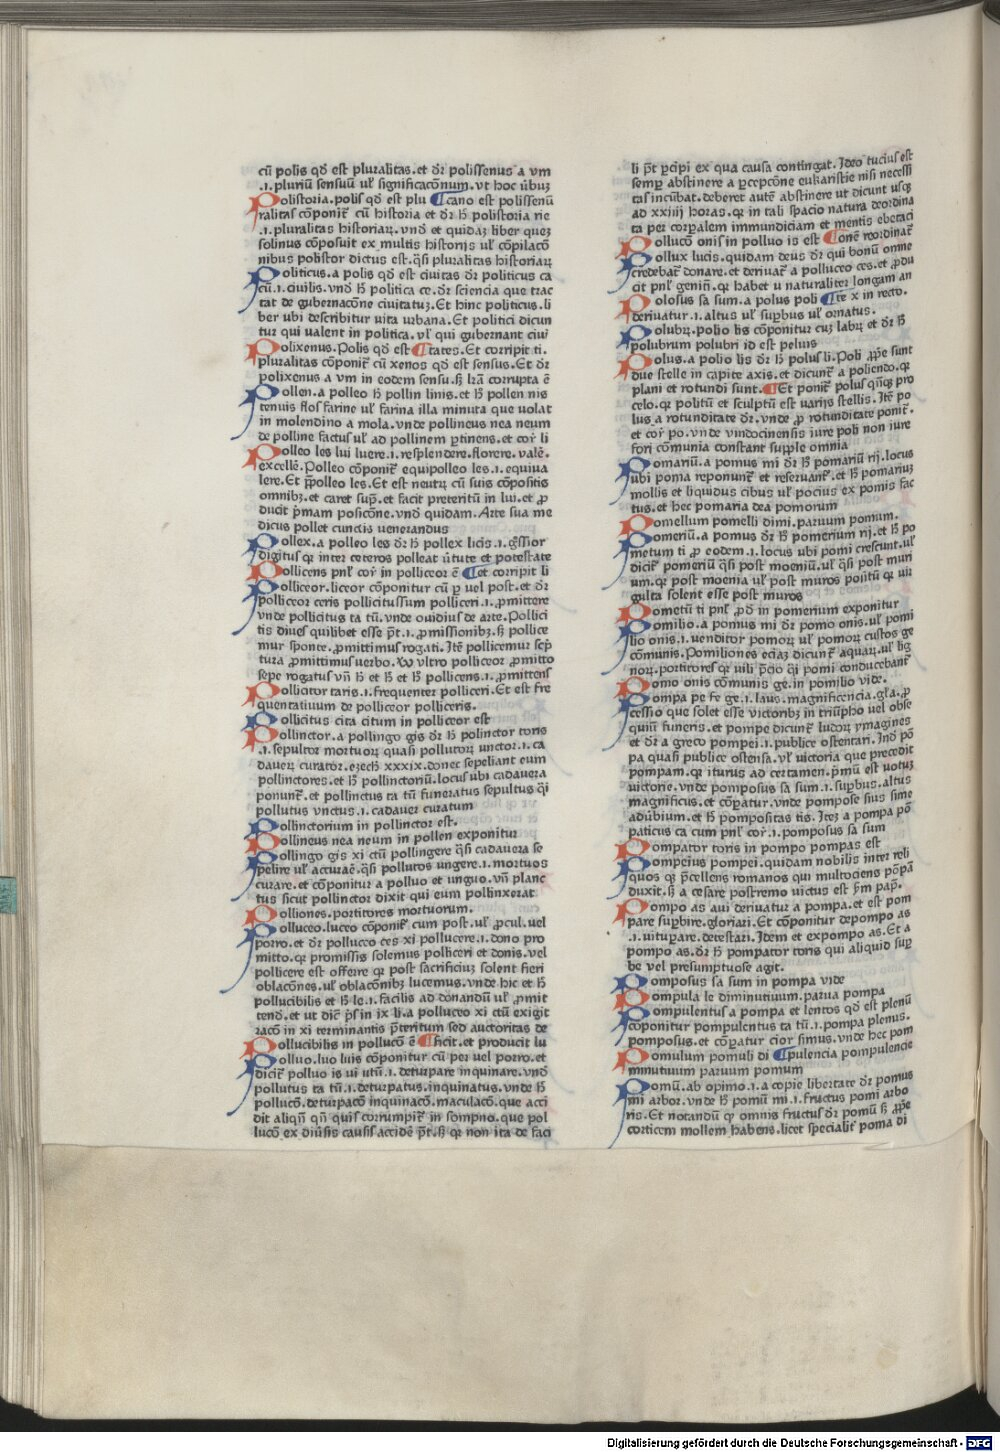 cū polis qď est pluralitas. et ďr polissenus a vm
.i. pluriū sensuū uł significacōnum. vt hoc ūbuȝ
Polistoria. polis qď est plu ¶cano est polissenū
ralitas cōponiť cū historia et ďr ħ polistoria rie
.i. pluralitas historiaꝝ. vnď et quidaȝ liber queȝ
solinus cōposuit ex multis historijs uł cōpilacō
nibus polistor dictus est. q̄si pluralitas historiaꝝ
Politicus. a polis qď est ciuitas ďr politicus ca
cū .i. ciuilis. vnď ħ politica ce. ďr sciencia que trac
tat de gubernacōne ciuitatuȝ. Et hinc politicus. li
ber ubi describitur uita urbana. Et politici dicun
tur qui ualent in politica. vł qui gubernant ciui
Polixenus. Polis qď est ¶tates. Et corripit ti.
pluralitas cōponiť cū xenos qď est sensus. Et ďr
polixenus a vm in eodem sensu. ꝫ lr̄a corrupta ē
Pollen. a polleo ħ pollin linis. et ħ pollen nis
tenuis flos farine uł farina illa minuta que uolat
in molendino a mola. vnde pollineus nea neum
de polline factus uł ad pollinem ꝑtinens. et coř li
Polleo les lui luere .i. resplendere. florere. valē.
excellē. Polleo cōponiť equipolleo les .i. equiua
lere. Et p̄polleo les. Et est neutꝝ cū suis cōpositis
omnibȝ. et caret sup̄. et facit preteritū in lui. et ꝓ
ducit p̄mam posicōne. vnď quidam. Arte sua me
dicus pollet cunctis uenerandus
Pollex. a polleo les ďr ħ pollex licis .i. gᷤssior
digitus qꝛ inter ceteros polleat ūtute et potestate
Pollicens pnł coř in polliceor ē ¶et corripit li
Polliceor. liceor cōponitur cū ꝑ uel post. et ďr
polliceor ceris pollicitussum polliceri .i. ꝓmittere
vnde pollicitus ta tū. vnde ouidius de arte. Pollici
tis diues quilibet esse p̄t .i. ꝓmissionibȝ. ꝫ pollice
mur sponte. ꝓmittimus rogati. Itē pollicemur scp̄
tura ꝓmittimus uerbo. W vltro polliceor ꝓmitto
sepe rogatus vn̄ ħ et ħ et ħ pollicens .i. ꝓmittens
Pollicitor taris .i. frequenter polliceri. Et est fre
quentatiuum de polliceor polliceris.
Pollicitus cita citum in polliceor est
Pollinctor. a pollingo gis ďr ħ polinctor toris
.i. sepultor mortuoꝝ quasi pollutoꝝ unctor .i. ca
daueꝝ curator. eȝecħ xxxix. donec sepeliant eum
pollinctores. et ħ pollinctoriū. locus ubi cadauera
ponunť. et pollinctus ta tū funeratus sepultus q̄i
pollutus vnctus .i. cadauer curatum
Pollinctorium in pollinctor est.
Pollineus nea neum in pollen exponitur
Pollingo gis xi ctū pollingere q̄si cadauera se
pelire uł accuraē. q̄si pollutos ungere .i. mortuos
curare. et cōponitur a polluo et unguo. vn̄ planc
tus sicut pollinctor dixit qui eum pollinxerat
Polliones. portitores mortuorum.
Polluceo. luceo cōponiť cum post. uł ꝓcul. uel
porro. et ďr polluceo ces xi pollucere .i. dono pro
mitto. qꝛ promissis solemus polliceri et donis. vel
pollicere est offerre qꝛ post sacrificiuȝ solent fieri
oblacōnes. uł oblacōnibȝ lucemus. vnde hic et ħ
pollucibilis et ħ le .i. facilis ad donandū uł ꝓmit
tenď. et ut diċ p̄s in ix li. a polluceo xi ctū exigit
racō in xi terminantis p̄teritum sed auctoritas de
Pollucibilis in pollucō ē ¶ficit. et producit lu
Polluo. luo luis cōponitur cū per uel porro. et
diciť polluo is ui utū .i. deturpare inquinare. vnď
pollutus ta tū .i. deturpatus. inquinatus. vnde ħ
pollucō. deturpacō inquinacō. maculacō. que acci
dit aliqn̄ qn̄ quis corrumpiť in sompno. que pol
lucō ex diūsis causis accidē p̄t. ꝫ qꝛ non ita de faci
li p̄t ꝑcipi ex qua causa contingat. Ideo tucius est
semꝑ abstinere a ꝑcepcōne eukaristie nisi necessi
tas incūbat. deberet autē abstinere ut dicunt usqȝ
ad xxiiij horas. qꝛ in tali spacio natura deordina
ta per corꝑalem immundiciam et mentis ebetaci
Pollucō onis in polluo is est ¶onē reordinať
Pollux lucis. quidam deus ďr qui bonū omne
credebať donare. et deriuať a polluceo ces. et ꝓdu
cit pnł genin̄. qꝛ habet u naturaliter longam an
Polosus sa sum. a polus poli ¶te x in recto.
deriuatur .i. altus uł suꝑbus uł ornatus.
Polubꝝ. polio lis cōponitur cuȝ labꝝ et ďr ħ
polubrum polubri id est peluis
Polus. a polio lis ďr ħ polus li. Poli ꝓṗe sunt
due stelle in capite axis. et dicunť a poliendo. qꝛ
plani et rotundi sunt. ¶Et poniť polus qn̄qȝ pro
celo. qꝛ politū et sculptū est uarijs stellis. Itē po
lus a rotunditate ďr. vnde ꝓ rotunditate poniť.
et coř po. vnde vindocinensis iure poli non iure
fori cōmunia constant supple omnia
Pomariū. a pomus mi ďr ħ pomariū rij. locus
ubi poma reponunť et reseruanť. et ħ pomariuȝ
mollis et liquidus cibus uł pocius ex pomis fac
tus. et hec pomaria dea pomorum
Pomellum pomelli dimi. paruum pomum.
Pomeriū. a pomus ďr ħ pomerium rij. et ħ po
metum ti ꝓ eodem .i. locus ubi pomi crescunt. uł
diciť pomeriū q̄si post moeniū. uł q̄si post muri
um. qꝛ post moenia uł post muros positū qꝛ uir
gulta solent esse post muros
Pometū ti pnł ꝓď in pomerium exponitur
Pomilio. a pomus mi ďr pomo onis. uł pomi
lio onis .i. uenditor pomoꝝ uł pomoꝝ custos ge
cōmunis. Pomiliones eciaȝ dicunť aquaꝝ. uł lig
noꝝ. portitores qꝛ uili p̄cio q̄i pomi conducebanť
Pomo onis cōmunis ge. in pomilio vide.
Pompa pe fe ge .i. laus. magnificencia. gła. ꝓ
cessio que solet esse victoribȝ in triūpho uel obse
quiū funeris. et pompe dicunť ludoꝝ ymagines
et ďr a greco pompei .i. publice ostentari. Inď pō
pa quasi publice ostensa. vł uictoria que precedit
pompam. qꝛ iturus ad certamen. p̄mū est uotuȝ
uictorie. vnde pomposus sa sum .i. suꝑbus. altus
magnificus. et cōꝑatur. vnde pompose sius sime
adūbium. et ħ pompositas tis. Iteȝ a pompa pō
paticus ca cum pnł coř .i. pomposus sa sum
Pompator toris in pompo pompas est
Pompeius pompei. quidam nobilis inter reli
quos qȝ p̄cellens romanos qui multociens pōpā
duxit. ꝫ a cesare postremo uictus est ẜm paṗ.
Pompo as aui deriuatur a pompa. et est pom
pare suꝑbire. gloriari. Et cōponitur depompo as
.i. uituꝑare. detestari. Idem et expompo as. Et a
pompo as. ďr ħ pompator toris qui aliquid suꝑ
be vel presumptuose agit.
Pomposus sa sum in pompa vide
Pompula le diminutiuum. parua pompa
Pompulentus a pompa et lentos qď est plenū
cōponitur pompulentus ta tū .i. pompa plenus.
pomposus. et cōꝑatur cior simus. vnde hec pom
Pomulum pomuli di ¶pulencia pompulencie
minutiuum paruum pomum
Pomū. ab opimo .i. a copie libertate ďr pomus
mi arbor. vnde ħ pomū mi .i. fructus pomi arbo
ris. Et notandū qꝛ omnis fructus ďr pomū ꝫ ꝓṗe
corticem mollem habens. licet specialiť poma di
Digitalisierung gefördert durch die Deutsche Forschungsgemeinschaft - DFG